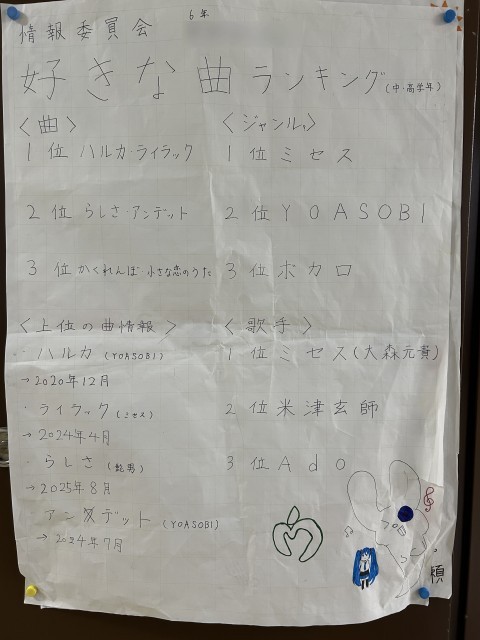 6年
情報委員会
好きな曲ランキング(中・高学年)
〈曲〉
1位ハルカ・ライラック
2位らしさ・アンデット
3位かくれんぼ・小さな恋のうた
〈ジャンル〉
1位ミセス
2位YOASOBI
3位ボカロ
〈上位の曲情報〉
・ハルカ(YOASOBI)
→2020年12月
・ライラック(ミセス)
→2024年4月
・らしさ(髭男)
→2025年8月
・アンデット(YOASOBI)
→2024年7月
〈歌手〉
1位ミセス(大森元貴)
2位米津玄師
3位Ado